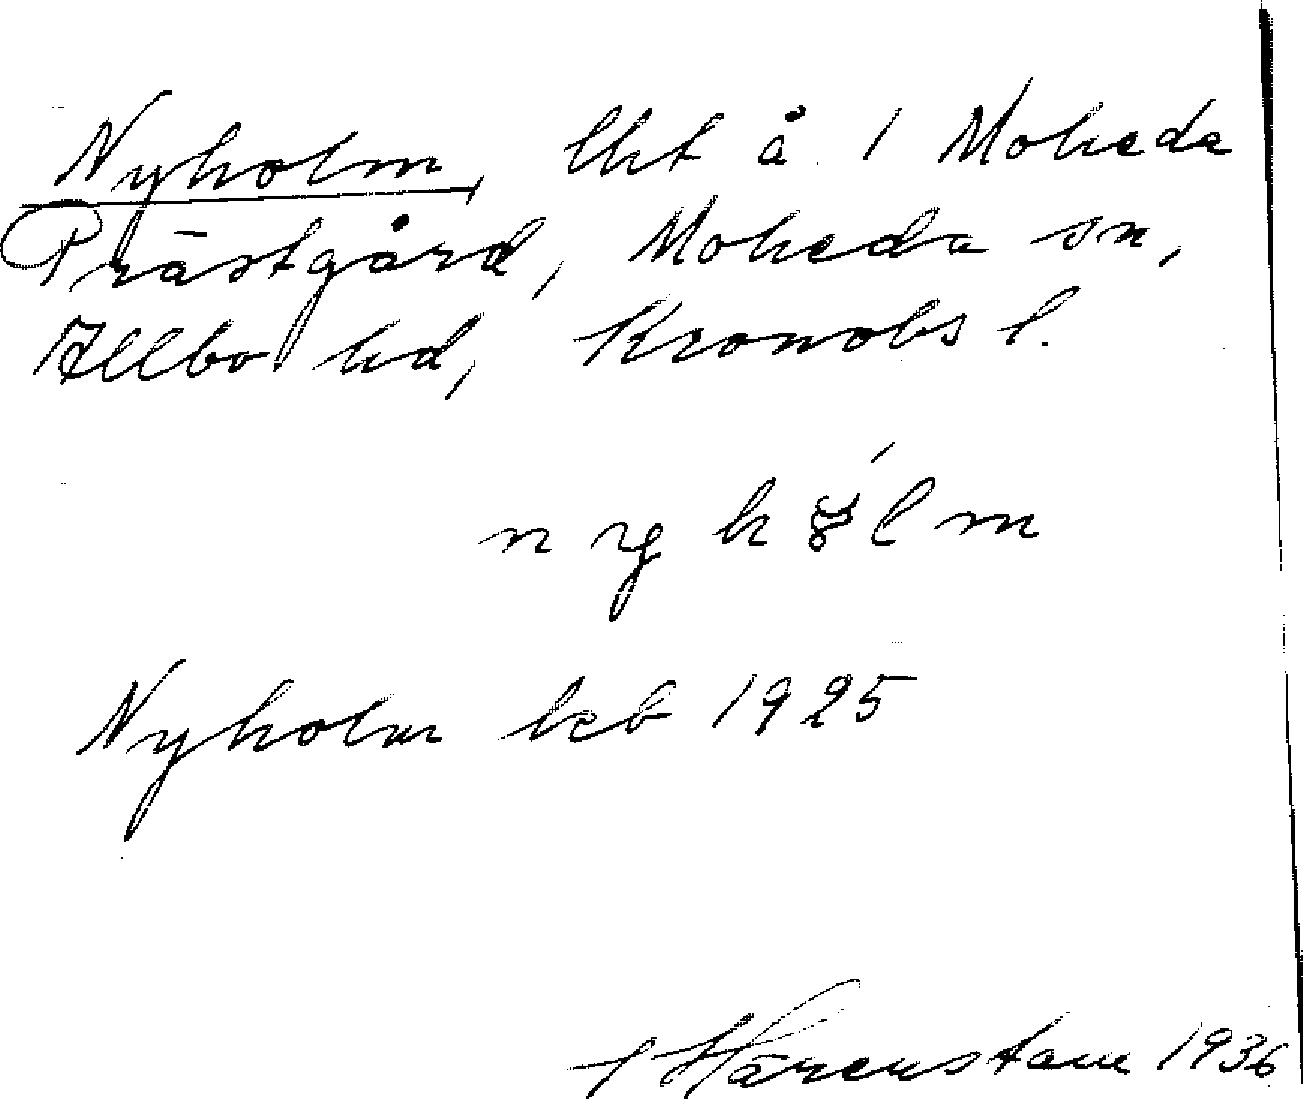 Nyholm, lht å 1 Moheda
Prästgård, Moheda sn,
Allbo hd, Kronobs l.
Nyholm kcb 1925
Härenstam 1936